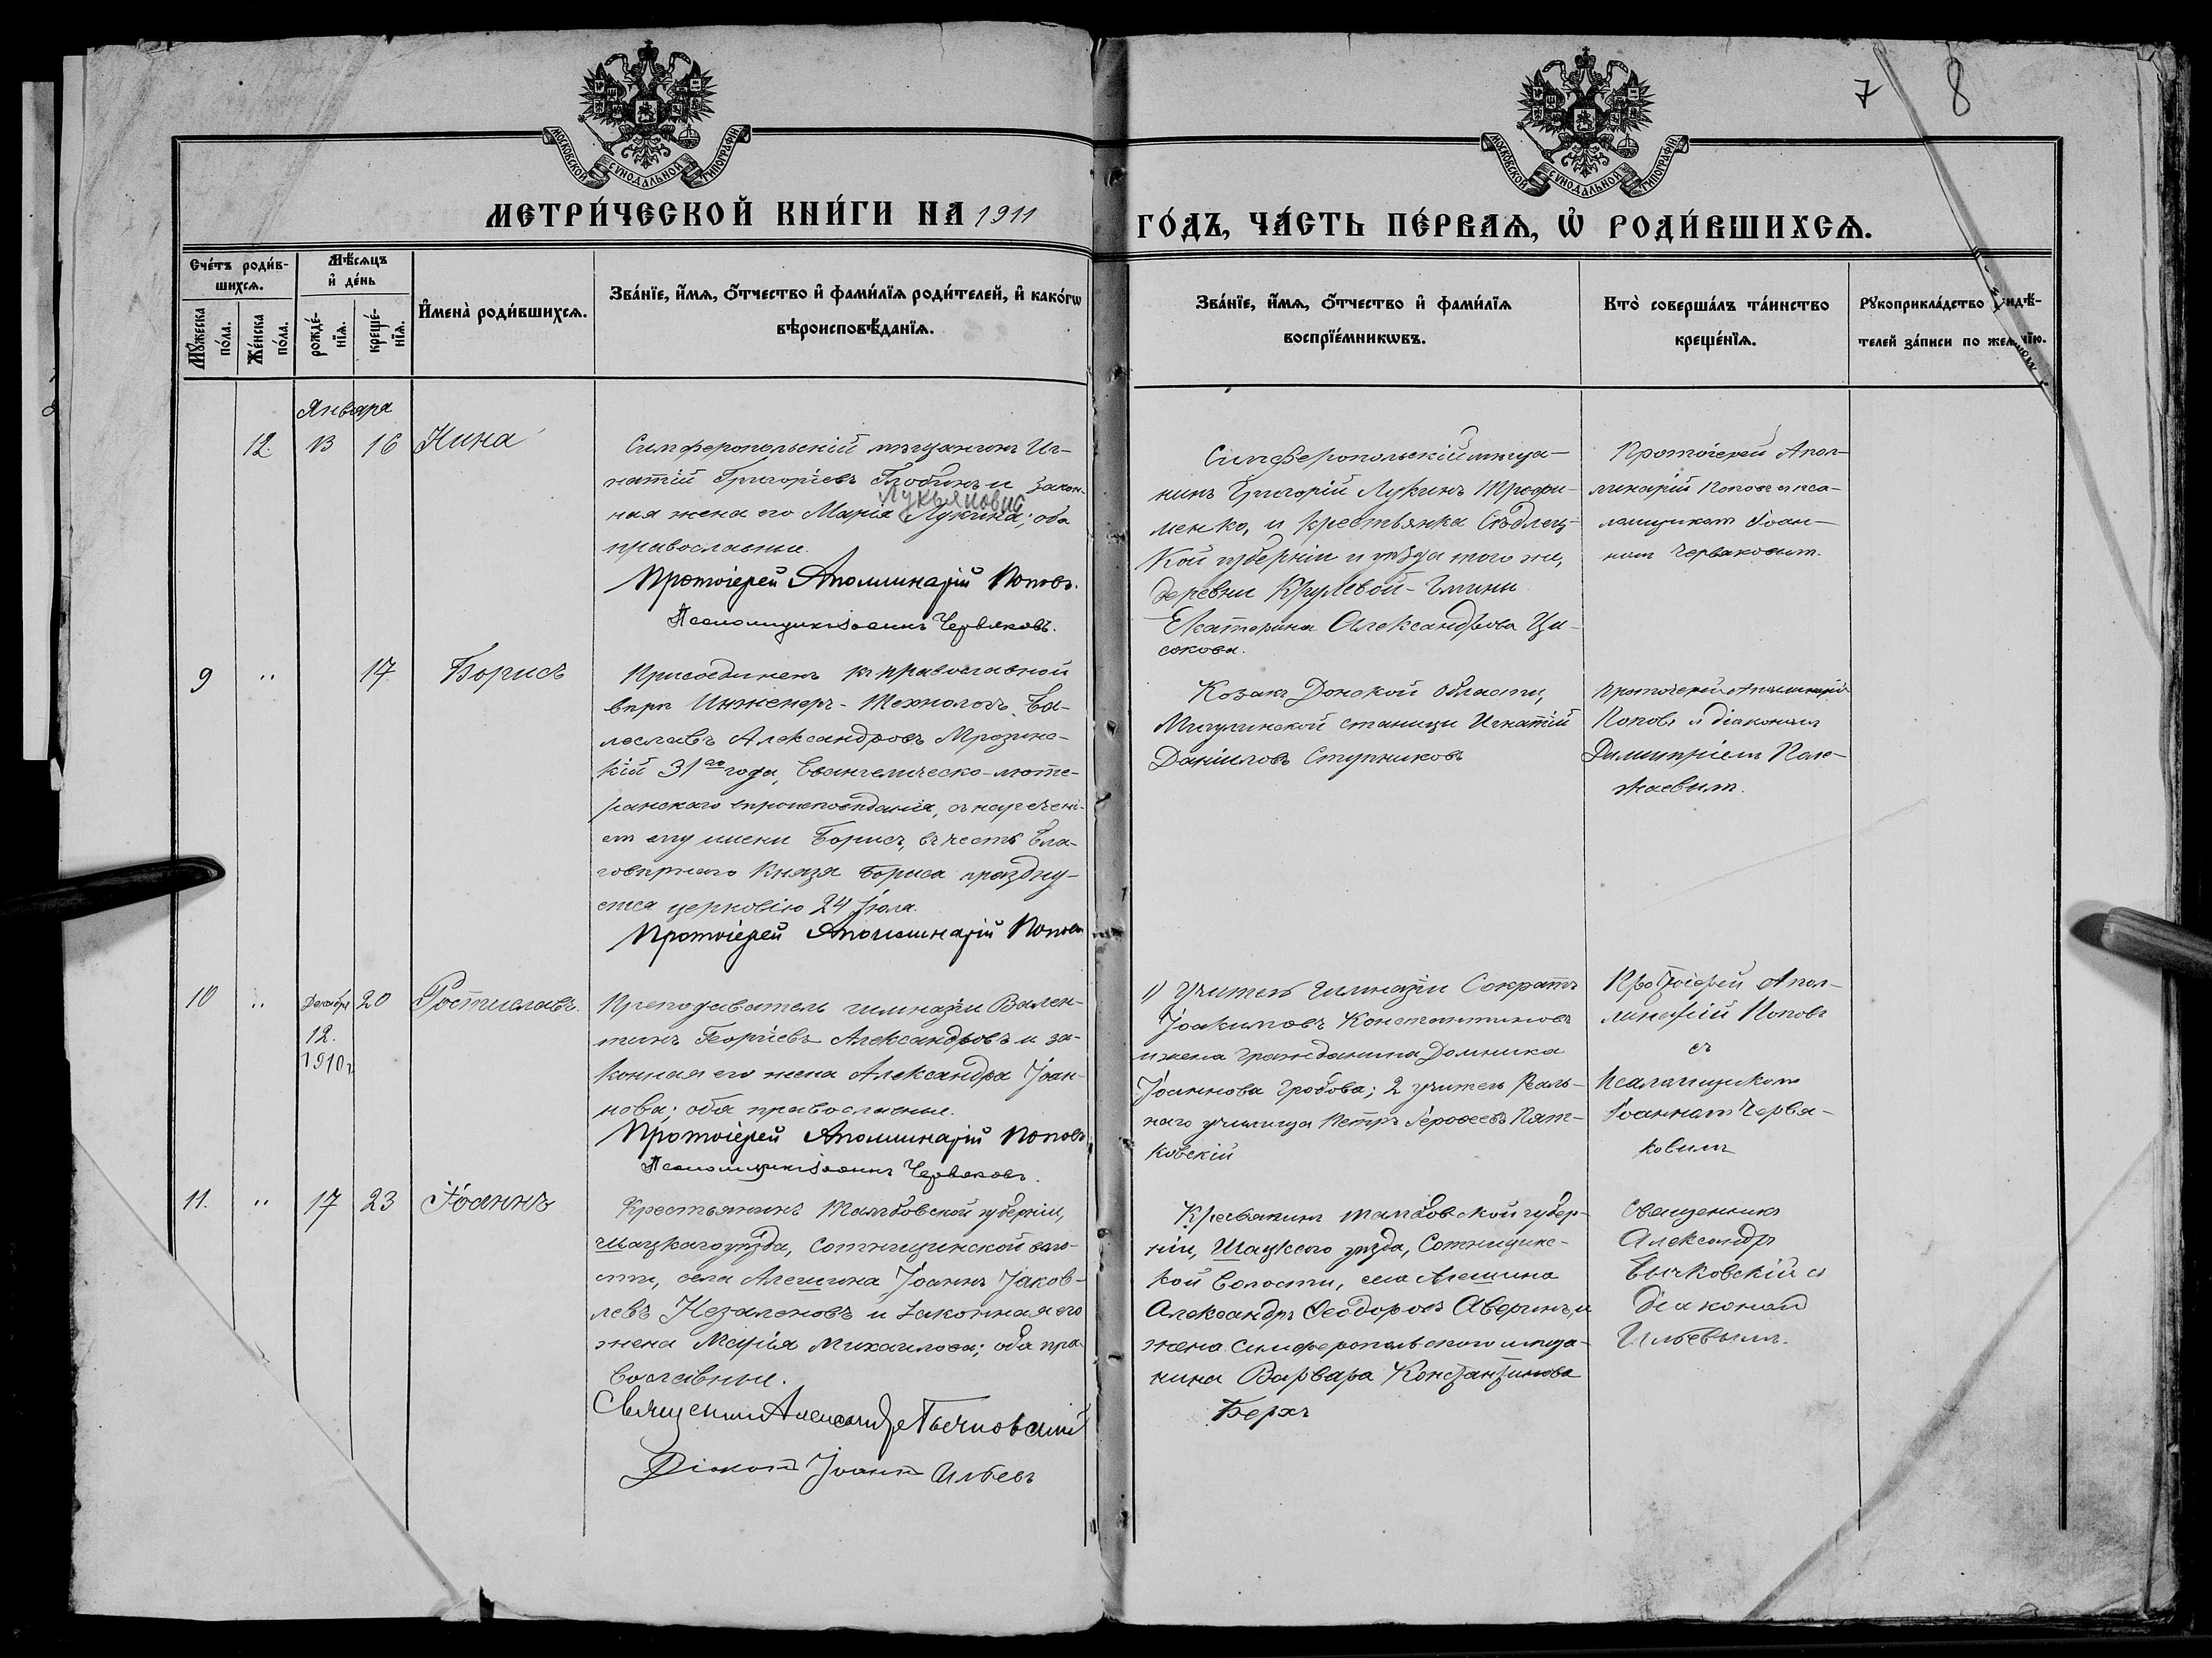 7 8
МОСКОВСКОЙ СѴНОДАЛЬНОЙ ТИПОГРАФІИ
МОСКОВСКОЙ СѴНОДАЛЬНОЙ ТИПОГРАФІИ
МЕТРИ́ЧЕСКОЙ КНИ́ГИ НА 1911
ГО́ДЪ, ЧА́СТЬ ПЕ́РВАѦ, Ѡ҆ РОДИ́ВШИХСѦ.
Сче́тъ роди́в-
шихсѧ.
Мꙋ́жеска
по́ла.
Же́нска
по́ла.
Мѣ́сѧцъ
и҆ де́нь
рожде́-
нїѧ.
креще́-
нїѧ.
И҆мена̀ роди́вшихсѧ.
Зва́нїе, и҆́мѧ, ѻ҆́тчество и҆ фами́лїѧ роди́телей, и҆ како́гѡ
вѣроисповѣ́данїѧ.
Зва́нїе, и҆́мѧ, ѻ҆́тчество и҆ фами́лїѧ
воспрїе́мникѡвъ.
Кто̀ соверша́лъ та́инство
креще́нїѧ.
Рꙋкоприкла́дство
телей за́писи по
Января
12. 13 16 Нина
Симферопольскій мѣщанинъ Иг-
натій Григоріевъ и закон-
Лукьяновна
ная жена его Марія Лукина; оба
православные.
Протоіерей Аполлинарій Поповъ.
Псаломщикъ Іоаннъ Червяковъ.
Симферопольскій мѣща-
нинъ Григорій Лукинъ Трофи-
менко, и крестьянка Сѣдлец-
кой губерніи и уѣзда того же,
деревни Крулевой-Гмины
Екатерина Александрова Ци-
сокова.
Протоіерей Апол-
линарій Поповъ съ пса-
ломщикомъ Іоан-
номъ Червяковымъ.
9 " 17 Борисъ
Присоединенъ къ православной
вѣрѣ Инженеръ-Технологъ Бо-
леславъ Александровъ Мрозинс-
кій 31го года, Евангелическо-люте-
ранскаго вѣроисповѣданія, съ наречені-
ем ему имени Борисъ, въ честь Бла-
говѣрнаго Князя Бориса праздну-
ется церковію 24 Іюля.
Протоіерей Аполлинарій Поповъ
Козакъ Донской области,
Мигулинской станицы Игнатій
Даніиловъ Ступниковъ
Протоіерей Аполлинарій
Поповъ и діакономъ
Димитріемъ Поло-
жаевымъ.
10 " Декабря 20 Ростиславъ.
12.
1910г
Преподаватель гимназіи Вален-
тинъ Георгіевъ Александровъ и за-
конная его жена Александра Іоан-
нова; оба православные.
Протоіерей Аполлинарій Поповъ
Псаломщикъ Іоаннъ Червяковъ.
1) Учитель Гимназіи Сократъ
Іоакимовъ Константиновъ
и жена гражданина Домника
Іоаннова Гробова; 2 учитель Реаль-
наго училища Петръ Іероѳеевъ Пят-
ковскій
Протоіерей Апол-
линарій Поповъ
съ
псаломщикомъ
Іоанномъ Червя-
ковымъ
11. " 17 23 Іоаннъ
Крестьянинъ Тамбовской губерніи,
Шацкаго уѣзда, Сотницинской воло-
сти, села Алешина Іоаннъ Іаков-
левъ Незаленовъ и законная его
жена Марія Михаилова; оба пра-
вославные.
Священникъ Александръ Бычковскій
Діаконъ Іоаннъ Ильевъ
Кресьянинъ Тамбовской губер-
ніи, Шацкого уѣзда, Сотницинс-
кой волости, села Алешина
Александръ Ѳеодоровъ Аверинъ, и
жена Симферопольского мѣща-
нина Варвара Константинова
Берхъ
Священникъ
Александръ
Бычковскій съ
діакономъ
Ильевымъ.